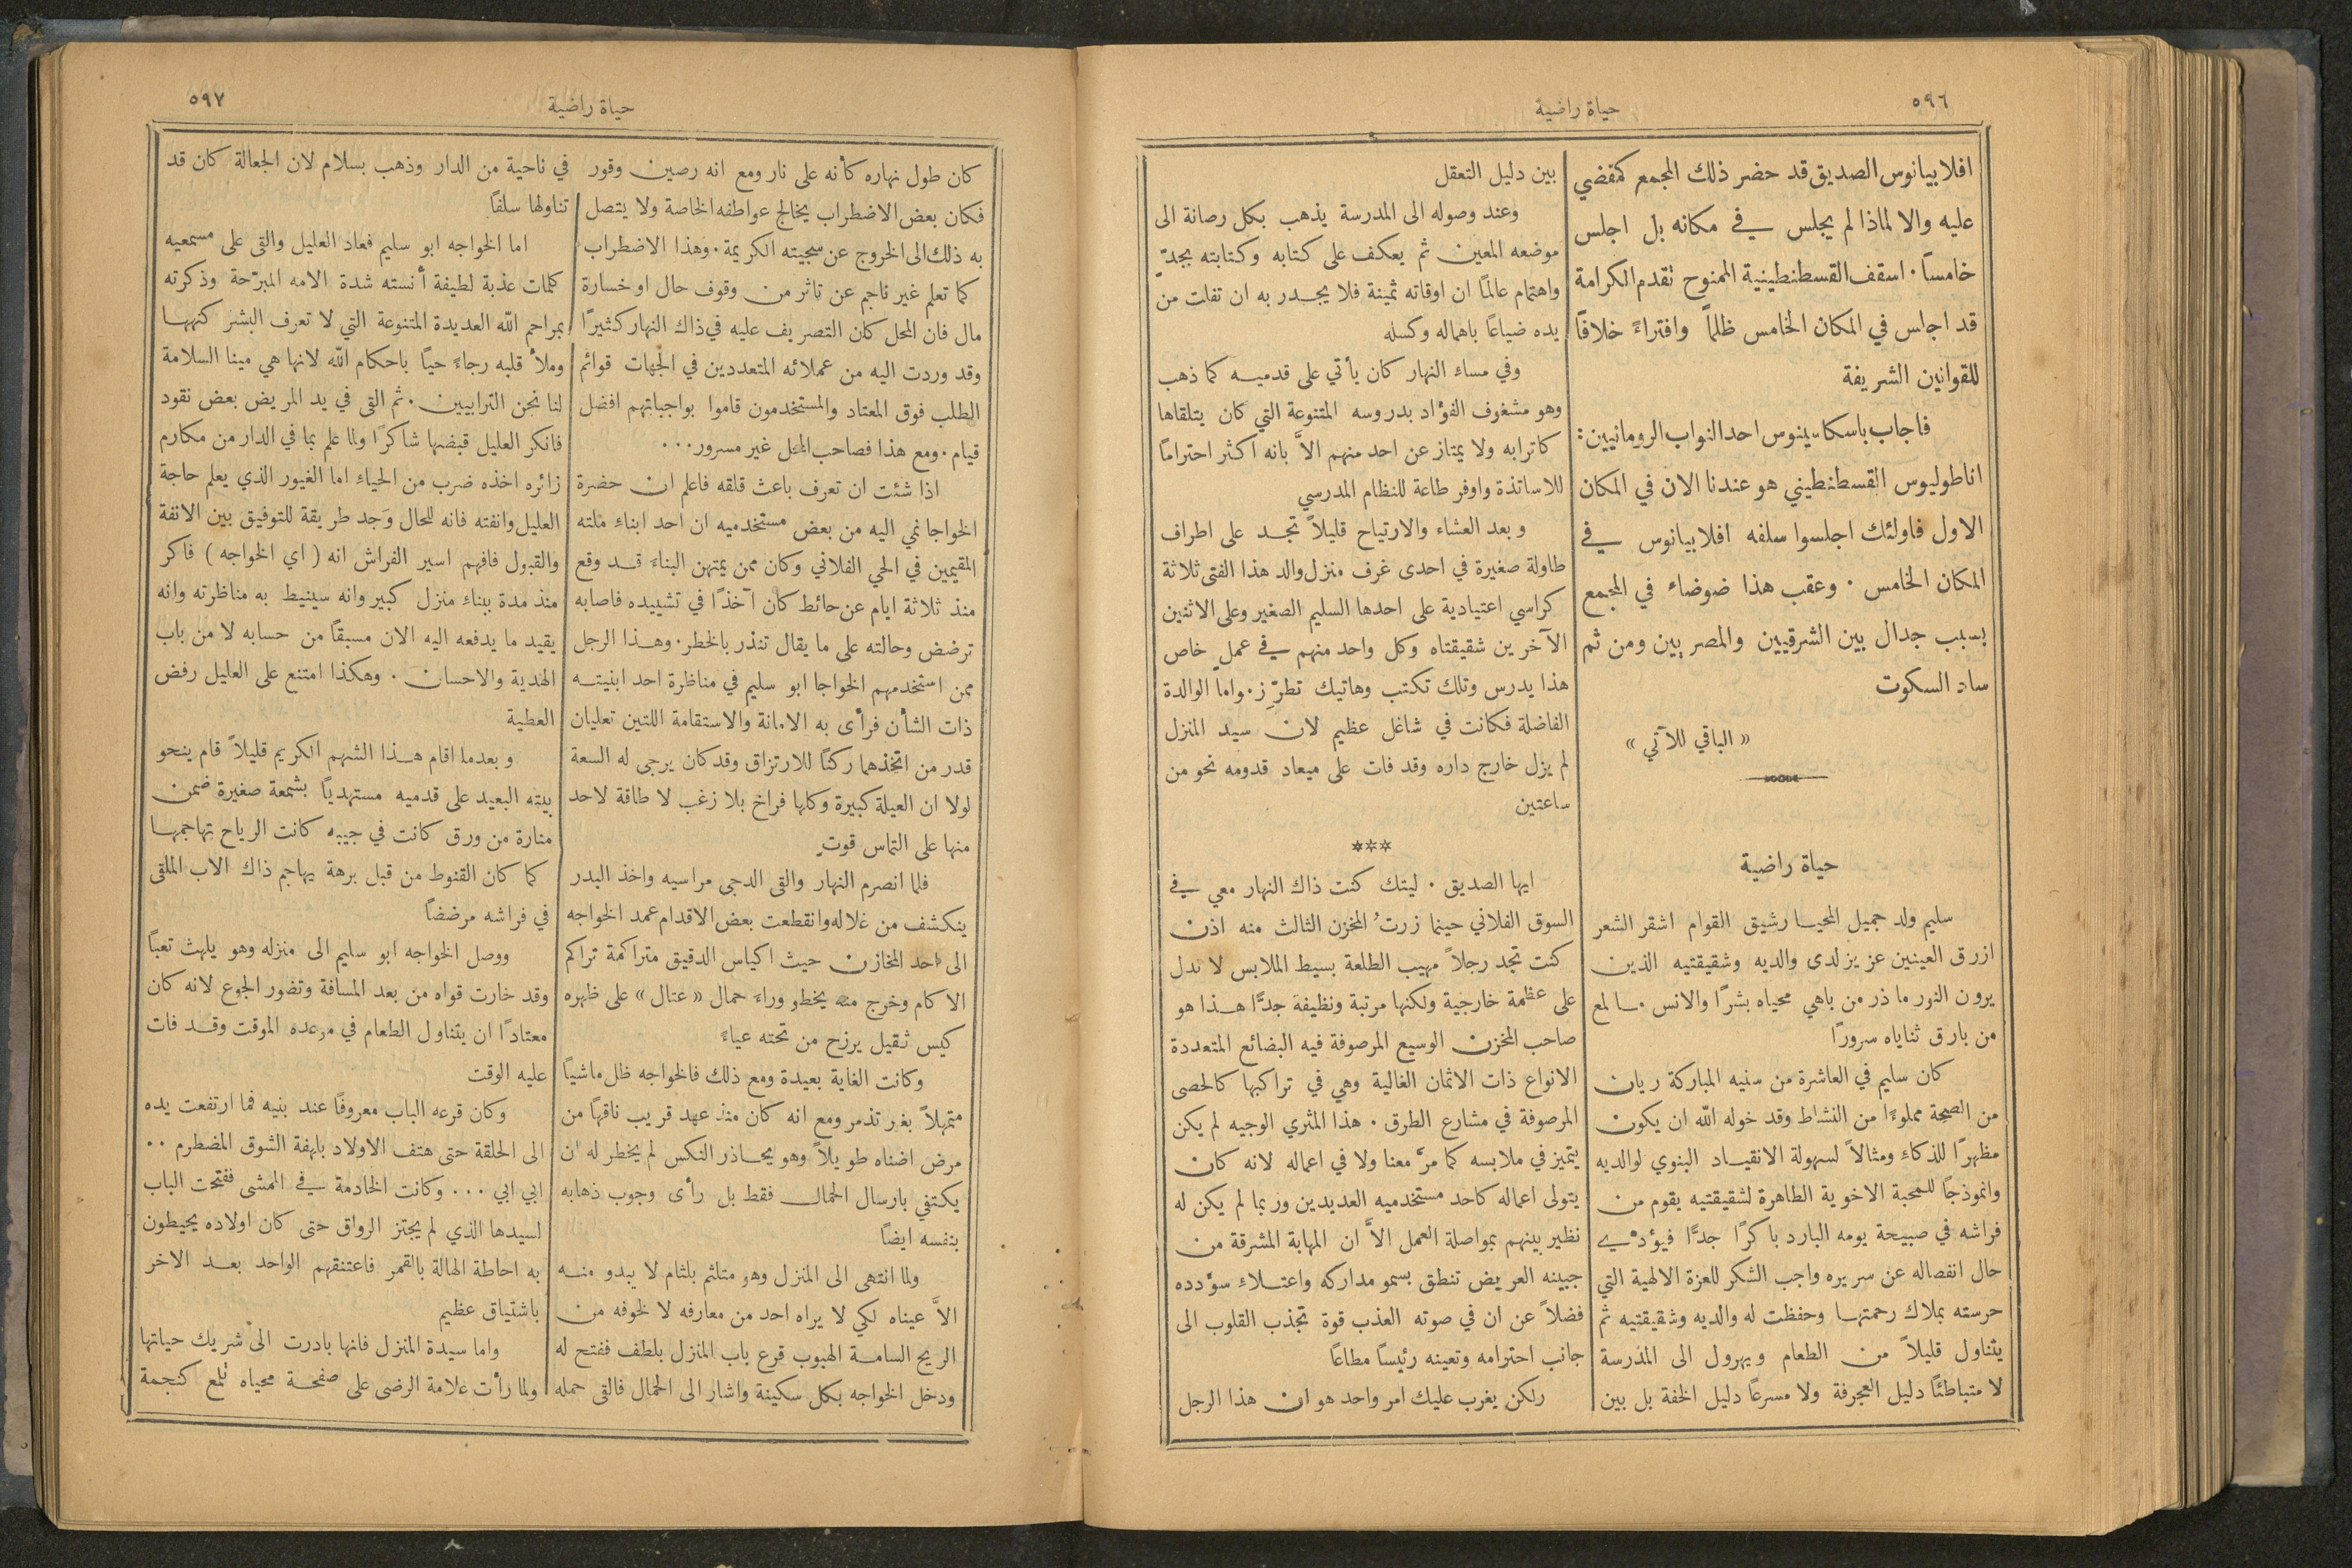 ٥٩٦
حياة راضية
افلابيانوس الصديق قد حضر ذلك المجمع كمفضي
عليه والا لماذا لم يجلس في مكانه بل اجلس
خامساً. اسقف القسطنطينية الممنوح تقدم الكرامة
قد اجلس في المكان الخامس ظلماً وافتراءً خلافاً
للقوانين الشريفة
فاجاب باسكاسينوس احد النواب الرومانيين:
اناطوليوس القسطنطيني هو عندنا الان في المكان
الاول فاولئك اجلسوا سلفه افلابيانوس في
المكان الخامس. وعقب هذا ضوضاء في المجمع
بسبب جدال بين الشرقيين والمصريين ومن ثم
ساد السكوت
« الباقي للآتي »
حياة راضية
سليم ولد جميل المحيا رشيق القوام اشقر الشعر
ازرق العينين عزيز لدى والديه وشقيقتيه الذين
يرون النور ما ذر من باهي محياه بشرًا والانس ما لمع
من بارق ثناياه سرورًا
كان سليم في العاشرة من سنيه المباركة ريان
من الصحة مملوءًا من النشاط وقد خوله الله ان يكون
مظهرًا للذكاء ومثالاً لسهولة الانقياد البنوي لوالديه
وانموذجًا للمحبة الاخوية الطاهرة لشقيقتيه يقوم من
فراشه في صبيحة يومه البارد باكرًا جدًّا فيؤدي
حال انفصاله عن سريره واجب الشكر للعزة الالهية التي
حرسته بملاك رحمتها وحفظت له والديه وشقيقتيه ثم
يتناول قليلاً من الطعام ويهرول الى المدرسة
لا متباطئًا دليل العجرفة ولا مسرعًا دليل الخفة بل بين
بين دليل التعقل
وعند وصوله الى المدرسة يذهب بكل رصانة الى
موضعه المعين ثم يعكف على كتابه وكتابته بجدّ
واهتمام عالمًا ان اوقاته ثمينة فلا يجدر به ان تفلت من
يده ضياعًا باهماله وكسله
وفي مساء النهار كان يأتي على قدميه كما ذهب
وهو مشغوف الفؤاد بدروسه المتنوعة التي كان يتلقاها
كاترابه ولا يمتاز عن احد منهم الاَّ بانه اكثر احترامًا
للاساتذة واوفر طاعة للنظام المدرسي
وبعد العشاء والارتياح قليلاً تجد على اطراف
طاولة صغيرة في احدى غرف منزل والد هذا الفتى ثلاثة
كراسي اعتيادية على احدها السليم الصغير وعلى الاثنين
الآخرين شقيقتاه وكل واحد منهم في عمل خاص
هذا يدرس وتلك تكتب وهاتيك تطرّز. واما الوالدة
الفاضلة فكانت في شاغل عظيم لان سيد المنزل
لم يزل خارج داره وقد فات على ميعاد قدومه نحو من
ساعتين
***
ايها الصديق. ليتك كنت ذاك النهار معي في
السوق الفلاني حينما زرتُ المخزن الثالث منه اذن
كنت تجد رجلاً مهيب الطلعة بسيط الملابس لا تدل
على عظمة خارجية ولكنها مرتبة ونظيفة جدًّا هذا هو
صاحب المخزن الوسيع المرصوفة فيه البضائع المتعددة
الانواع ذات الاثمان الغالية وهي في تراكبها كالحصى
المرصوفة في مشارع الطرق. هذا المثري الوجيه لم يكن
يتميز في ملابسه كما مرَّ معنا ولا في اعماله لانه كان
يتولى اعماله كاحد مستخدميه العديدين وربما لم يكن له
نظير بينهم بمواصلة العمل الاَّ ان المهابة المشرقة من
جبينه العريض تنطق بسمو مداركه واعتلاء سؤدده
فضلاً عن ان في صوته العذب قوة تجذب القلوب الى
جانب احترامه وتعينه رئيسًا مطاعًا
ولكن يغرب عليك امر واحد هو ان هذا الرجل
حياة راضية
٥٩٧
كان طول نهاره كأنه على نار ومع انه رصين وقور
فكان بعض الاضطراب يخالج عواطفه الخاصة ولا يتصل
به ذلك الى الخروج عن سجيته الكريمة. وهذا الاضطراب
كما تعلم غير ناجم عن تاثر من وقوف حال او خسارة
مال فان المحل كان التصريف عليه في ذاك النهار كثيرًا
وقد وردت اليه من عملائه المتعددين في الجهات قوائم
الطلب فوق المعتاد والمستخدمون قاموا بواجباتهم افضل
قيام. ومع هذا فصاحب المحل غير مسرور...
اذا شئت ان تعرف باعث قلقه فاعلم ان حضرة
الخواجا نمي اليه من بعض مستخدميه ان احد ابناء ملته
المقيمين في الحي الفلاني وكان ممن يمتهن البناء قد وقع
منذ ثلاثة ايام عن حائط كان آخذًا في تشييده فاصابه
ترضض وحالته على ما يقال تنذر بالخطر. وهذا الرجل
ممن استخدمهم الخواجا ابو سليم في مناظرة احد ابنيته
ذات الشأن فرأى به الامانة والاستقامة اللتين تعليان
قدر من اتخذهما ركنًا للارتزاق وقد كان يرجى له السعة
لولا ان العيلة كبيرة وكلها فراخ بلا زغب لا طاقة لاحد
منها على التماس قوت
فلما انصرم النهار والقى الدجى مراسيه واخذ البدر
ينكشف من غلاله وانقطعت بعض الاقدام عمد الخواجه
الى احد المخازن حيث اكياس الدقيق متراكمة تراكم
الاكام وخرج منه يخطو وراء حمال « عتال » على ظهره
كيس ثقيل يرزح من تحته عياءً
وكانت الغاية بعيدة ومع ذلك فالخواجه ظل ماشيًا
متمهلاً بغير تذمر ومع انه كان منذ عهد قريب ناقهًا من
مرض اضناه طويلاً وهو يحاذر النكس لم يخطر له ان
يكتفي بارسال الحمال فقط بل رأى وجوب ذهابه
بنفسه ايضًا
ولما انتهى الى المنزل وهو متلثم بلثام لا يبدو منه
الاَّ عيناه لكي لا يراه احد من معارفه لا لخوفه من
الريح السامة الهبوب قرع باب المنزل بلطف ففتح له
ودخل الخواجه بكل سكينة واشار الى الحمال فالقى حمله
في ناحية من الدار وذهب بسلام لان الجعالة كان قد
تناولها سلفًا
اما الخواجه ابو سليم فعاد العليل والقى على مسمعيه
كلمات عذبة لطيفة أنسته شدة الامه المبرّحة وذكرته
بمراحم الله العديدة المتنوعة التي لا تعرف البشر كنهها
وملأ قلبه رجاءً حيًا باحكام الله لانها هي مينا السلامة
لنا نحن الترابيين. ثم القى في يد المريض بعض نقود
فانكر العليل قبضها شاكرًا ولما علم بما في الدار من مكارم
زائره اخذه ضرب من الحياء اما الغيور الذي يعلم حاجة
العليل وانفته فانه للحال وَجد طريقة للتوفيق بين الانفة
والقبول فافهم اسير الفراش انه ( اي الخواجه ) فاكر
منذ مدة ببناء منزل كبير وانه سينيط به مناظرته وانه
يقيد ما يدفعه اليه الان مسبقًا من حسابه لا من باب
الهندية والاحسان. وهكذا امتنع على العليل رفض
العطية
وبعدما اقام هذا الشهم الكريم قليلاً قام ينحو
بيته البعيد على قدميه مستهديًا بشمعة صغيرة ضمن
منارة من ورق كانت في جيبه كانت الرياح تهاجمها
كما كان القنوط من قبل برهة يهاجم ذاك الاب الملقى
في فراشه مرضضًا
ووصل الخواجه ابو سليم الى منزله وهو يلهث تعبًا
وقد خارت قواه من بعد المسافة وتضور الجوع لانه كان
معتادًا ان يتناول الطعام في موعده الموقت وقد فات
عليه الوقت
وكان قرعه الباب معروفًا عند بنيه فما ارتفعت يده
الى الحلقة حتى هتف الاولاد بلهفة الشوق المضطرم..
ابي ابي ... وكانت الخادمة في الممشى ففتحت الباب
لسيدها الذي لم يجتز الرواق حتى كان اولاده يحيطون
به احاطة الهالة بالقمر فاعتنقهم الواحد بعد الاخر
باشتياق عظيم
واما سيدة المنزل فانها بادرت الى شريك حياتها
ولما رأت علامة الرضى على صفحة محياه تلمع كنجمة